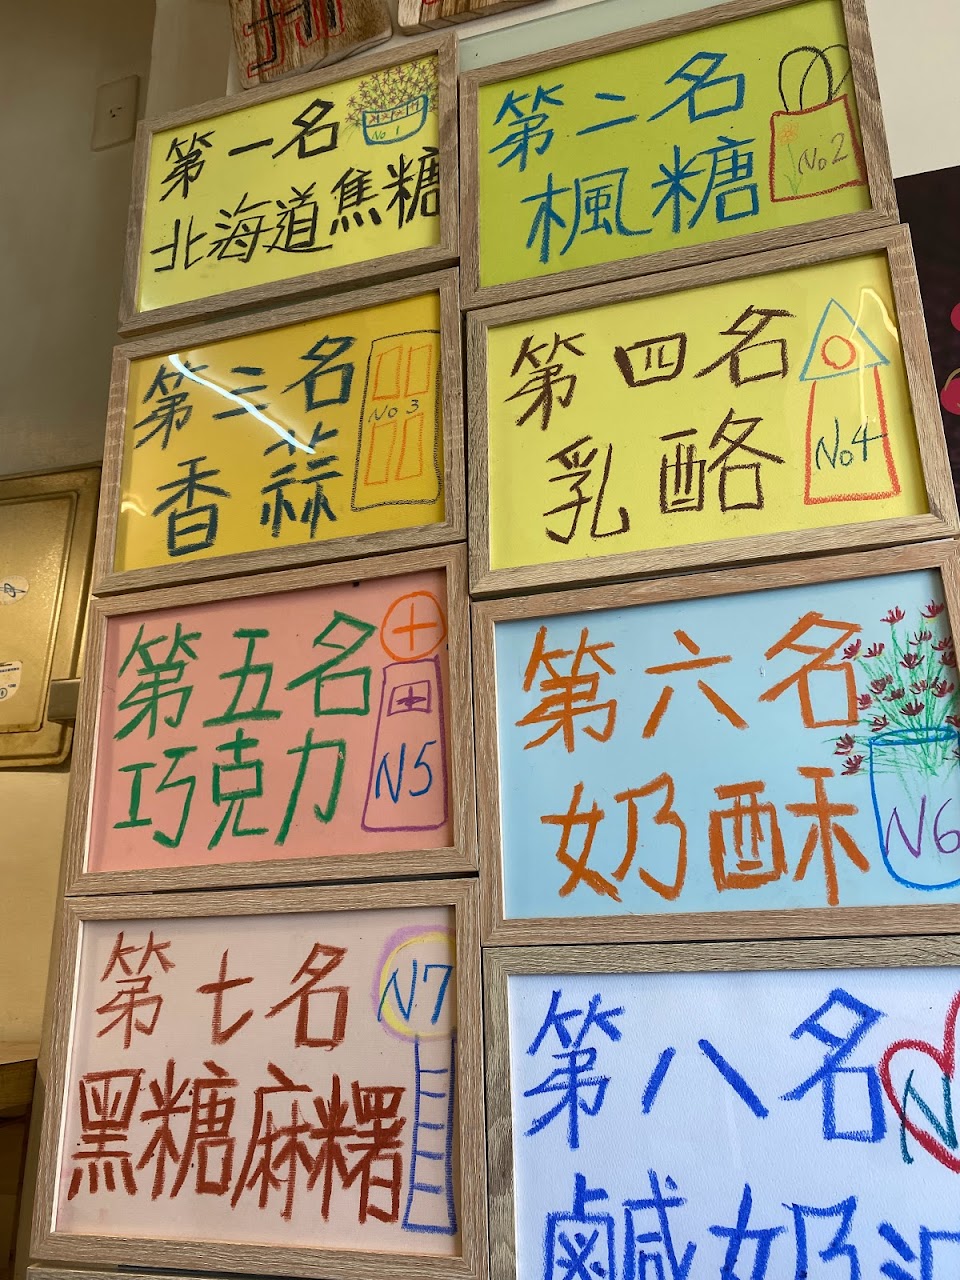 第一名
No 1
北海道焦糖
第二名
No 2
楓糖
第三名
No 3
香蒜
第四名
No4
乳酪
第五名
N5
巧克力
第六名
N6
奶酥
第七名
N7
黑糖麻糬
第八名
N
鹹奶